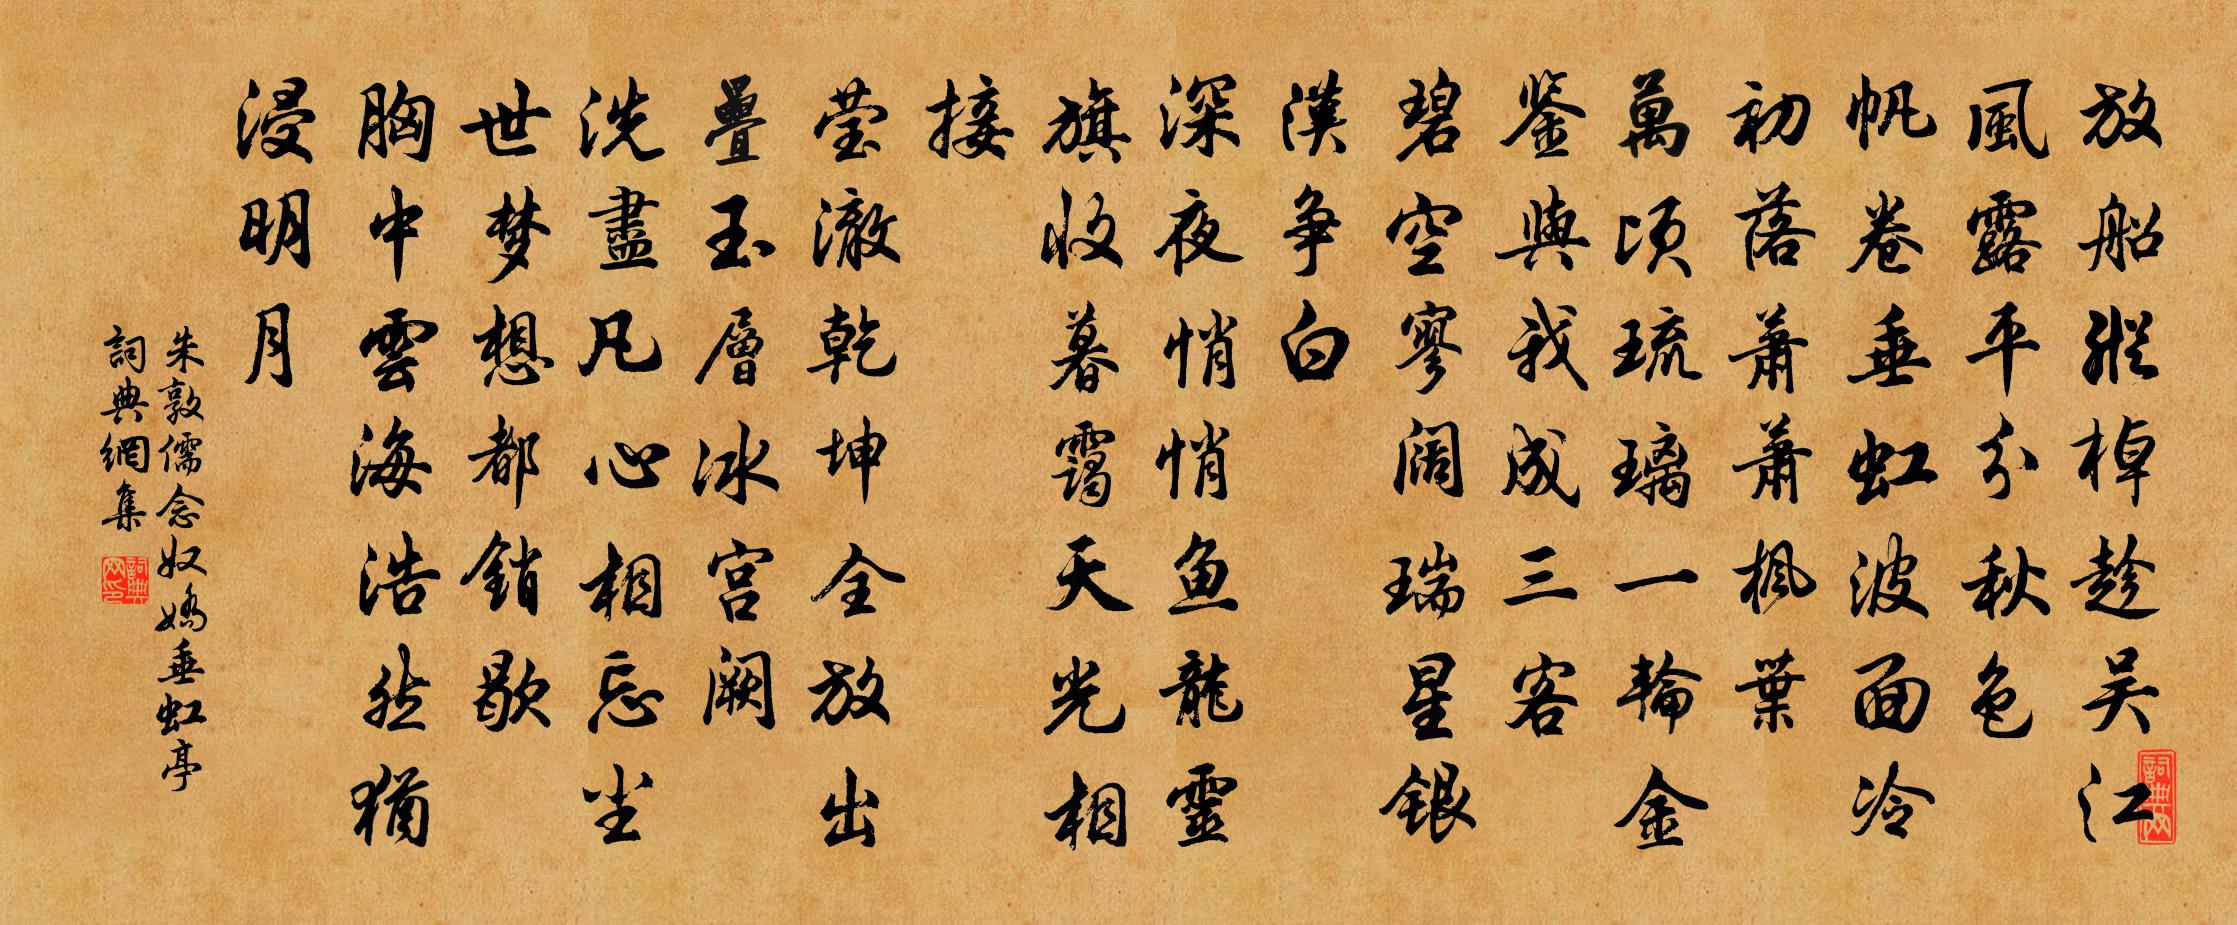 放船縱棹趁吴江
風露平分秋色
帆卷垂虹波面冷
初落蕭蕭楓葉
萬頃琉璃一輪金
鉴與我成三客
碧空寥阔瑞星銀
漢争白
深夜悄悄魚龍靈
旗收暮靄天光相
接
莹澈乾坤全放出
疊玉層冰宫阙
洗盡凡心相忘尘
世梦想都銷歇
胸中雲海浩然猶
浸明月
朱敦儒念奴嬌垂虹亭
詞典網集
詞典網印
詞典网